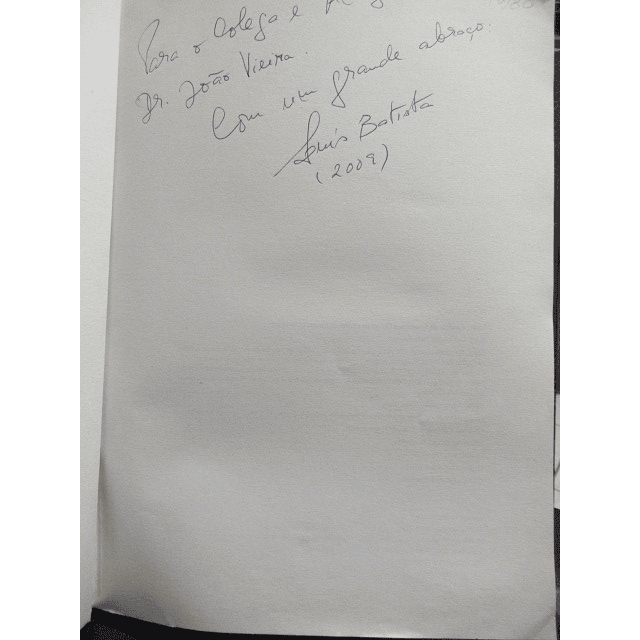 Para o Colega e
Dr. João Vieira.
Com um grande abraço.
Luís Batista
(2009)